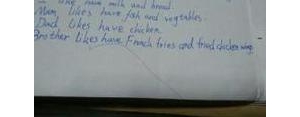 like have milk and bread.
Mom likes have fish and vegtables.
Dad likes have chicken.
Brother likes have French fries and fried chicken wing.